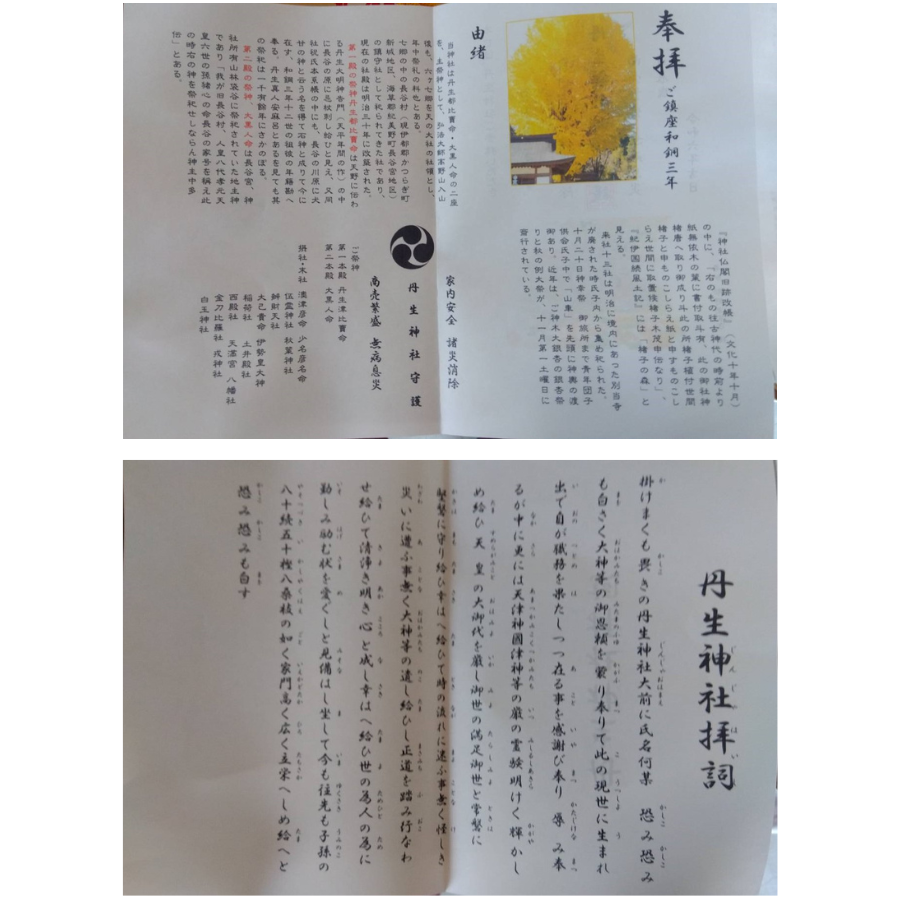 奉拝
ご鎮座和銅三年
由緒
当神社は丹生都比賣命・大黒人命の二座
を、主祭神として、弘法大師高野山入山
後も、六ヶ七郷を天の大社の社領とし、
年中祭礼の料也とある。
七郷の中の長谷村（現伊都郡かつらぎ町
新城地区、海草郡紀美野町長谷宮地区）
の鎮守社として祀られてきた社であり、
現在の社殿は明治三十年に改築された。
第一殿の祭神丹生都比賣命は天野に伝わ
る丹生大明神告門（天平年間の作）の中
に長谷の原に忌杖刺し給ひと見え、又同
社祝氏本系帳の中にも、長谷の川原に犬
甘の神と云う名を得て石神と成りて今に
在す、和銅三年十二世の祖彼の年籍勘へ
奉る、丹生真人安麻呂とあるを見ても其
の祭祀は一千有餘年にさかのぼる。
第二殿の祭神、大黒人命は長谷宮、神
社所有山林袋谷に祭祀されていた地主神
であり「我が旧長谷村、人皇八代孝元天
皇六世の孫緒心の命長谷の家号を称え此
の時右の神を祭祀せしならん神主中多
俗」とある。
『神社仏閣旧跡改帳』（文化十年十月）
の中に、「右のもの往古神代の時前より
紙無依木の葉に書付取斗有、此の御社神
楮唐へ取り御成り斗此の所楮子植付世間
楮子と申ものこしらえ紙と申すものこし
らえ世間に取置候楮子木茂申伝なり」、と
『紀伊国続風土記』には「楮子の森」と
見える。
末社十三社は明治に境内にあった別当寺
が廃された時氏子内から集め祀られた。
十月二十日神幸祭　御旅所まで青年団子
供会氏子中で「山車」を先頭に神輿の渡
御あり、近年は、ご神木大銀杏の銀杏祭
りと秋の例大祭が、十一月第一土曜日に
斎行されている。
家内安全　諸災消除
丹生神社守護
商売繁盛　無病息災
ご祭神
第一本殿　丹生津比賣命
第二本殿　大黒人命
摂社・末社　湊津彦命　少名彦名命
伍霊神社　秋葉神社
辧財天社
大己貴命　伊勢皇大神
稲荷社　土井殿社
西殿社　天満宮　八幡社
金刀比羅社　戎神社
白玉神社
丹生神社拝詞
掛けまくも畏きの丹生神社大前に氏名何某　恐み恐み
も白さく大神等の御恩頼を蒙り奉りて此の現世に生まれ
出で自が職務を果たしつつ在る事を感謝び奉り　辱み奉
るが中に更には天津神國津神等の厳の霊験明けく輝かし
め給ひ　天皇の大御代を厳し御世の満足御世と常磐に
堅磐に守り給ひ幸はへ給ひて時の流れに迷ふ事無く怪しき
災いに遭ふ事無く大神等の遺し給ひし正道を踏み行なわ
せ給ひて清浄き明き心と成し幸はへ給ひ世の為人の為に
勤しみ励む状を愛ぐしと見備はし坐して今も往先も子孫の
八十続五十橿八桑枝の如く家門高く広く立栄へしめ給へと
恐み恐みも白す